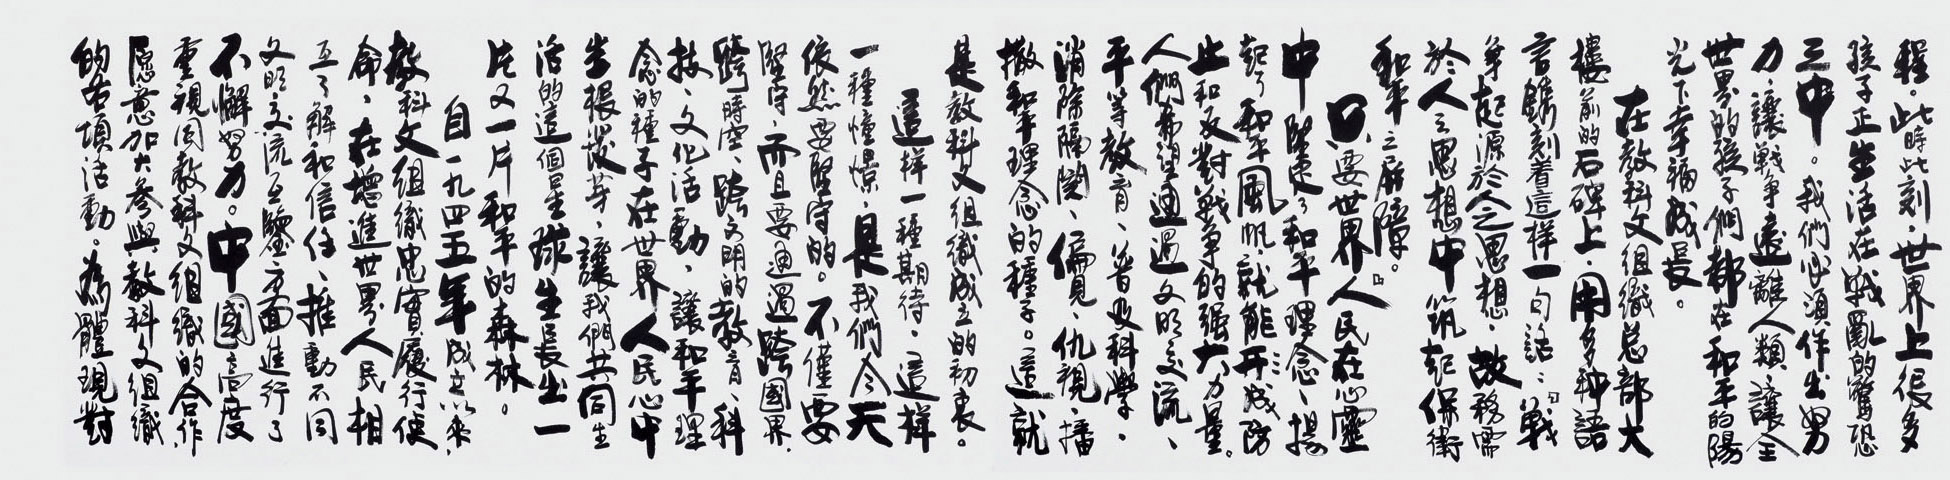 程。此時此刻，世界上很多
孩子正生活在戰亂的驚恐
之中。我們必須作出努
力，讓戰争遠離人類，讓全
世界的孩子們都在和平的陽
光下幸福成長。
在教科文組織总部大
樓前的石碑上，用多种語
言鐫刻着這样一句話：“戰
争起源於人之思想，故務需
於人之思想中筑起保衛
和平之屏障。”
只要世界人民在心靈
中堅定了和平理念、揚
起了和平風帆，就能形成防
止和反對戰争的强大力量。
人們希望通過文明交流、
平等教育、普及科學，
消除隔閡、偏見、仇視，播
撒和平理念的種子。這就
是教科文組織成立的初衷。
這样一種期待，這样
一種憧憬，是我們今天
依然要堅守的。不僅要
堅守，而且要通過跨國界、
跨時空、跨文明的教育、科
技、文化活動，讓和平理
念的種子在世界人民心中
生根發芽，讓我們共同生
活的這個星球生長出一
片又一片和平的森林。
自一九四五年成立以來，
教科文組織忠實履行使
命，在增進世界人民相
互了解和信任、推動不同
文明交流互鑒方面進行了
不懈努力。中國高度
重視同教科文組織的合作，
愿意加大參與教科文組織
的各項活動。為體現對